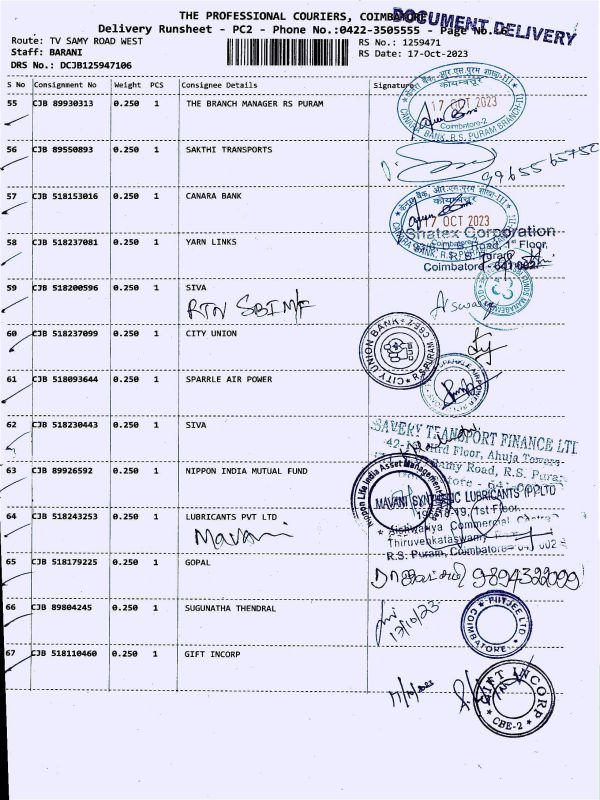 THE PROFESSIONAL COURIERS, COIMBATORE
DOCUMENT DELIVERY
Delivery Runsheet - PC2 - Phone No.:0422-3505555 - Page No.
Route: TV SAMY ROAD WEST
RS No.: 1259471
Staff: BARANI
RS Date: 17-Oct-2023
DRS No.: DCJB125947106
S No Consignment No Weight PCS Consignee Details Signature
55 CJB 89930313 0.250 1 THE BRANCH MANAGER RS PURAM
केनरा बैंक, आर.एस.पुरम शाखा-III
कोयम्बत्तूर
17 OCT 2023
Coimbatore-2
CANARA BANK, R.S. PURAM BRANCH-III
56 CJB 89550893 0.250 1 SAKTHI TRANSPORTS
9965565752
57 CJB 518153016 0.250 1 CANARA BANK
केनरा बैंक, आर.एस.पुरम शाखा-III
कोयम्बत्तूर
17 OCT 2023
CANARA BANK, R.S. PURAM
58 CJB 518237081 0.250 1 YARN LINKS
Shatex Corporation
Road, 1st Floor,
R.S. Puram
Coimbatore - 641 002
59 CJB 518200596 0.250 1 SIVA
RTN SBIMF
60 CJB 518237099 0.250 1 CITY UNION
CITY UNION BANK
R.S. PURAM
61 CJB 518093644 0.250 1 SPARRLE AIR POWER
62 CJB 518230443 0.250 1 SIVA
SAVERY TRANSPORT FINANCE LTD
Floor, Ahuja Towers
Samy Road, R.S. Puram
63 CJB 89926592 0.250 1 NIPPON INDIA MUTUAL FUND
Nippon Life India Asset Management
64 CJB 518243253 0.250 1 LUBRICANTS PVT LTD
Mavani
MAVANI SYNTHETIC LUBRICANTS (P) LTD
1st Floor,
Aishwarya Commercial
Thiruvenkataswamy
R.S. Puram, Coimbatore - 641 002
65 CJB 518179225 0.250 1 GOPAL
9894322099
66 CJB 89804245 0.250 1 SUGUNATHA THENDRAL
17/10/23
FIITJEE LTD
COIMBATORE
67 CJB 518110460 0.250 1 GIFT INCORP
GIFT INCORP
CBE-2